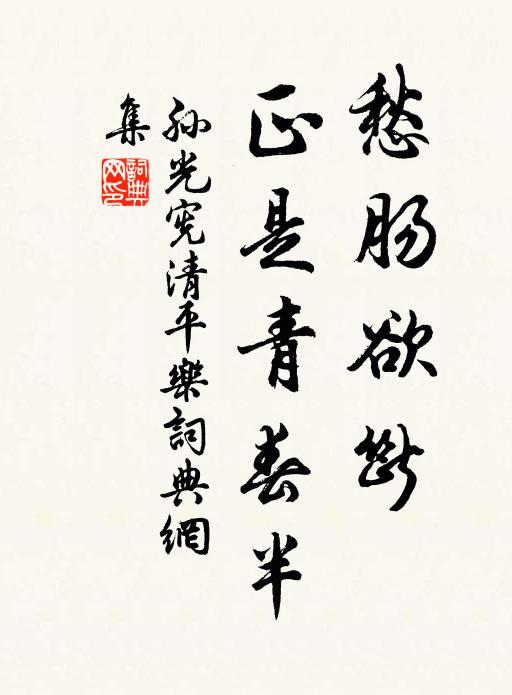 愁肠欲斷
正是青春半
孫光宪清平樂詞典網
集
詞典網印